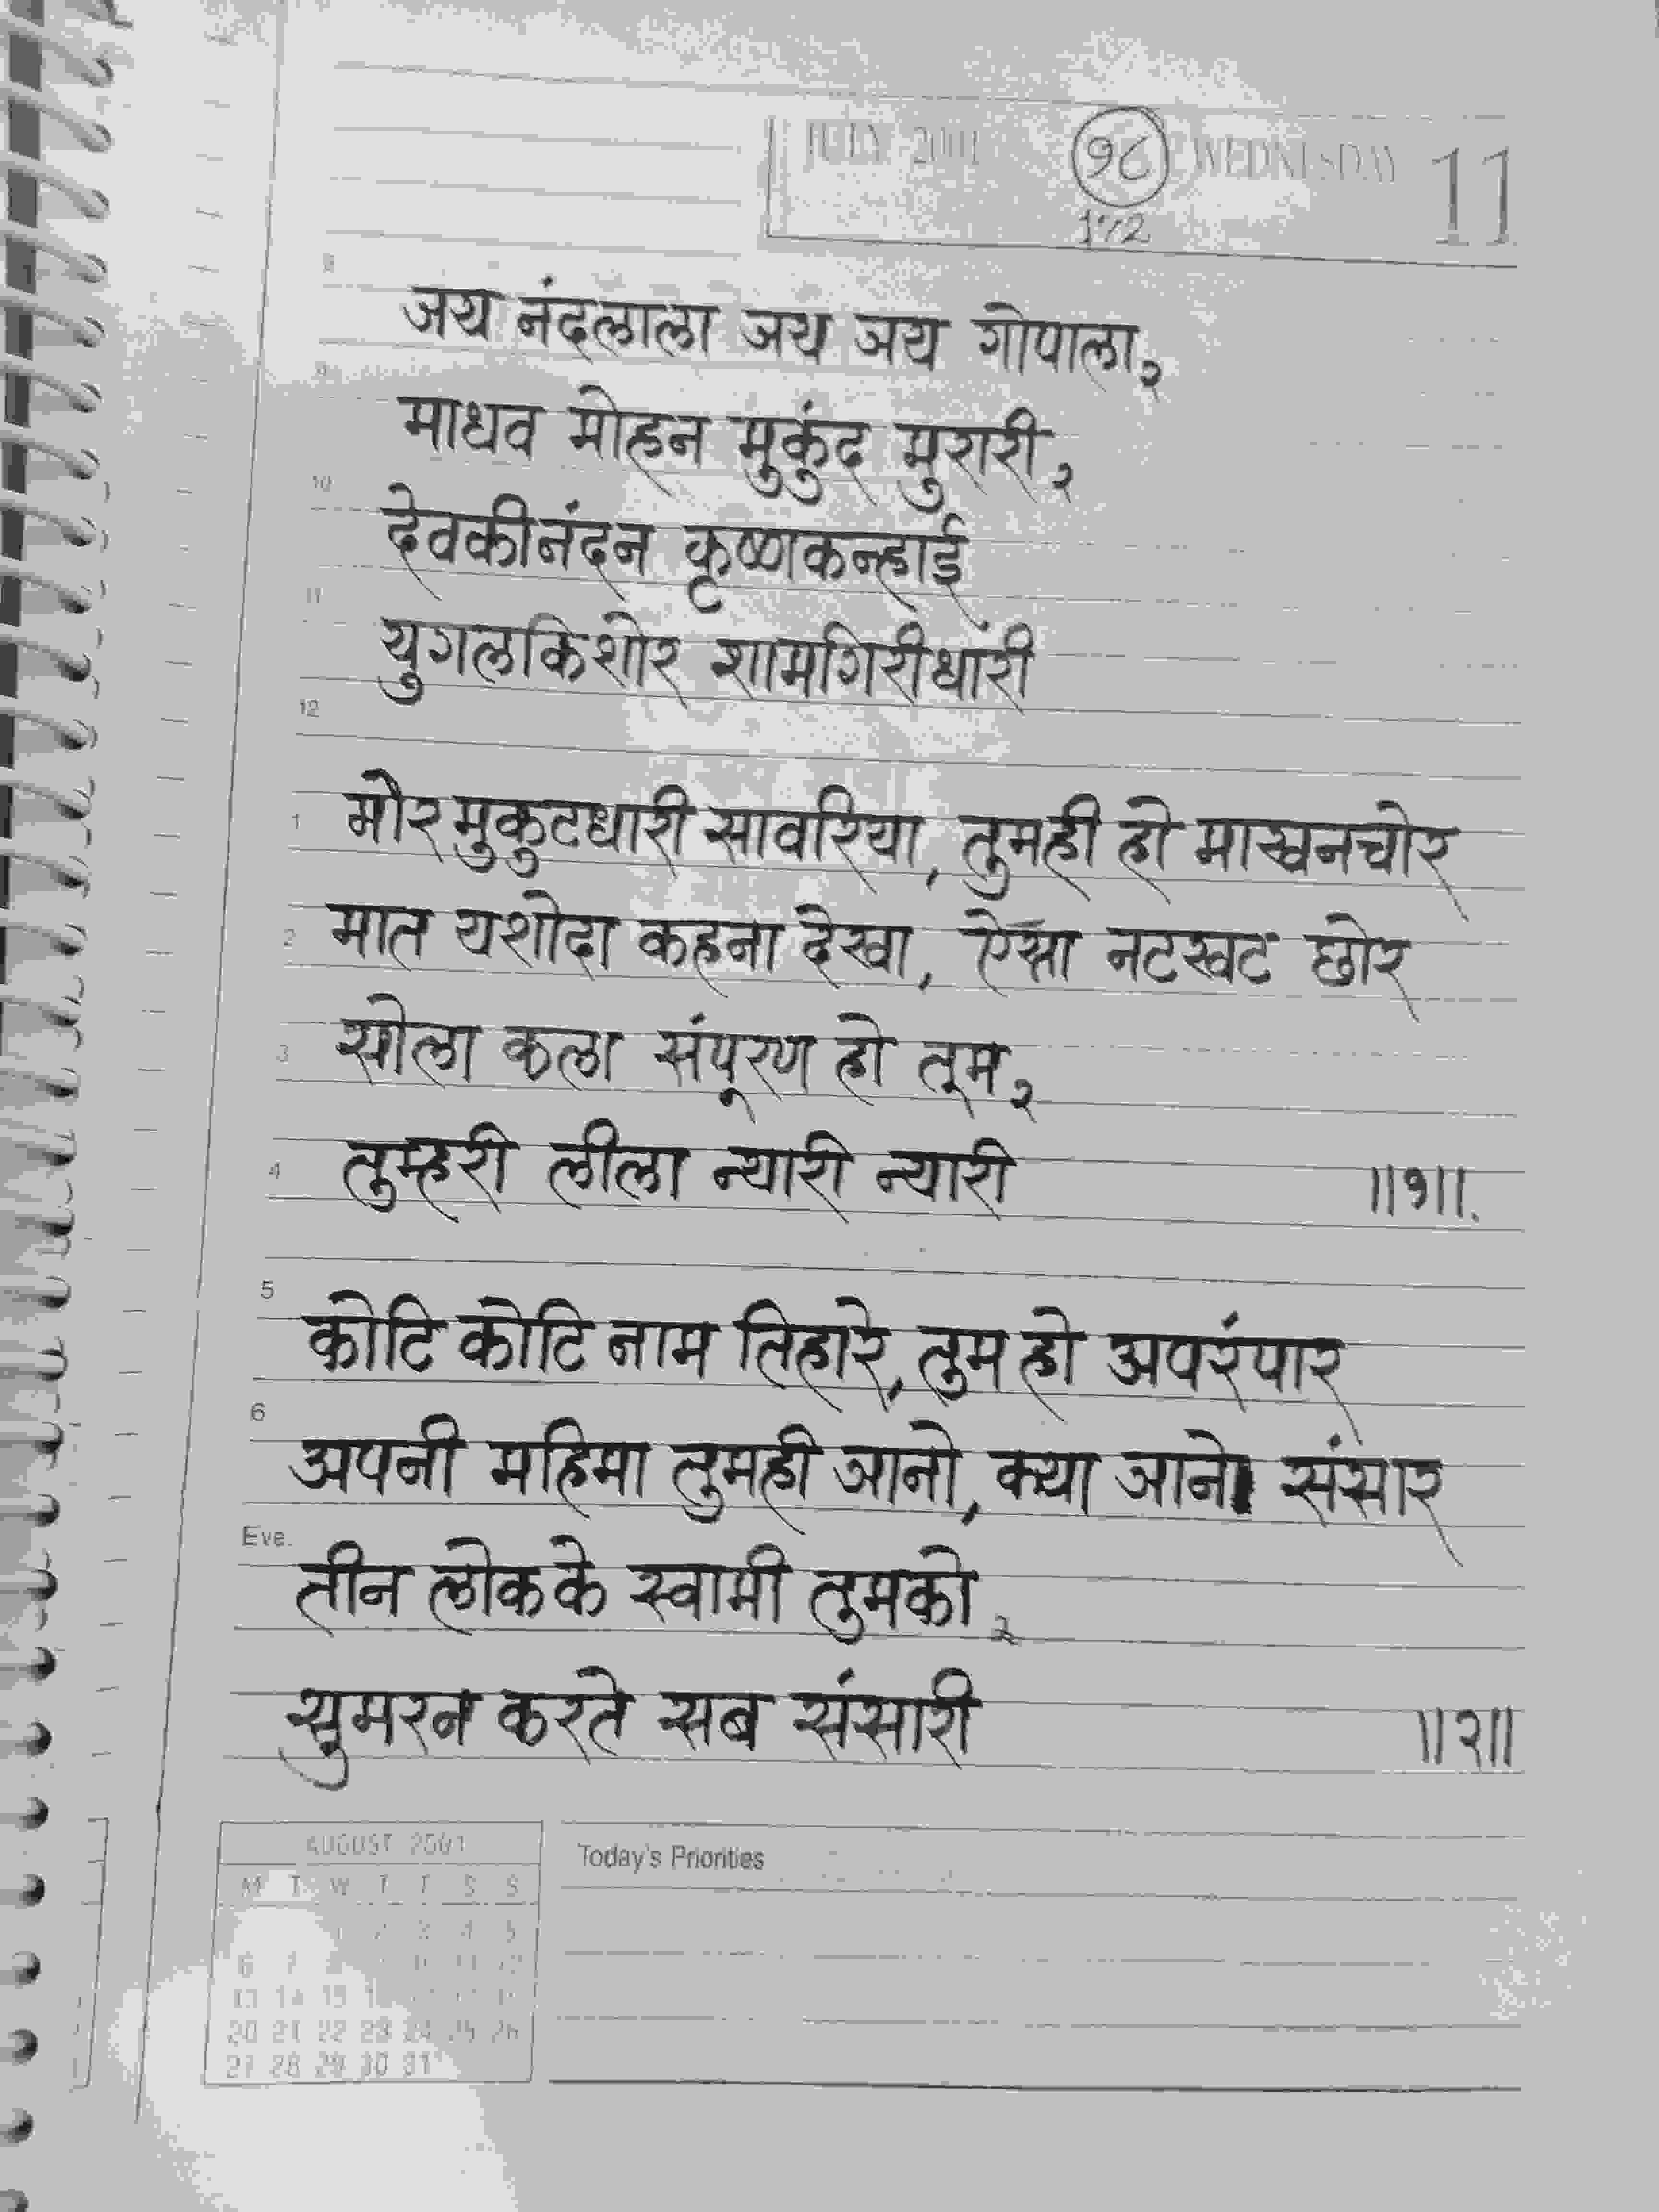 JULY 2001 १८ WEDNESDAY 11
8
जय नंदलाला जय जय गोपाला२
9
माधव मोहन मुकुंद मुरारी२
10
देवकीनंदन कृष्णकन्हाई
11
युगलकिशोर शामगिरीधारी
12
1 मोरमुकुटधारी सावरिया, तुमही हो माखनचोर
2 मात यशोदा कहना देखा, ऐसा नटखट छोर
3 सोला कला संपूरण हो तूम२
4 तुम्हरी लीला न्यारी न्यारी ॥१॥.
5
कोटि कोटि नाम तिहारे, तुम हो अपरंपार
6
अपनी महिमा तुमही जानो, क्या जाने संसार
Eve.
तीन लोकके स्वामी तुमको२
सुमरन करते सब संसारी ॥२॥
AUGUST 2001 Today's Priorities
M T W T F S S
2 3 4 5
6 7 11 12
13 14 15
20 21 22 23 24 25 26
27 28 29 30 31